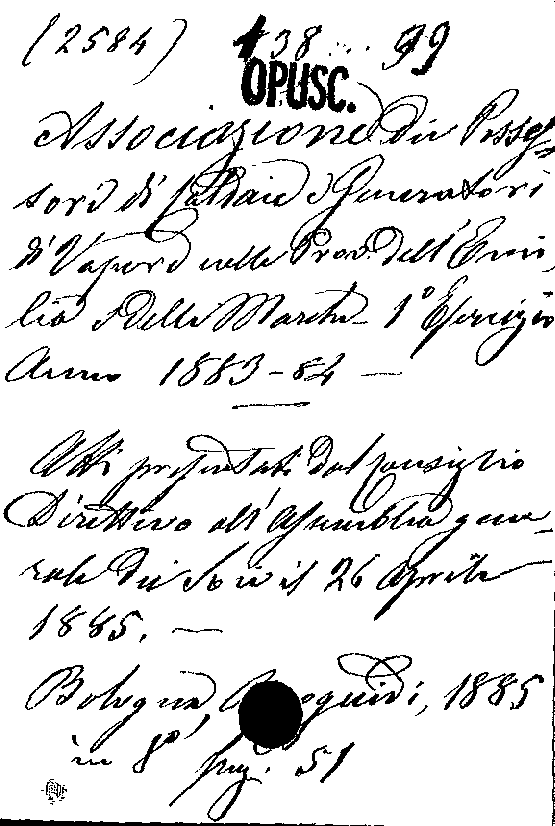 (2584) 138 ... 99
OPUSC.
Associazione dei Posses=
sori di Caldaie e Generatori
di Vapore nelle Prov. dell'Emi,
lia e delle Marche_ 1º Esercizio
Anno 1883-84 —
Atti presentati dal Consiglio
Direttivo all'Assemblea gene_
rale dei Soci il 26 Aprile
1885. —
Bologna, 1885
in 8º, pag. 51